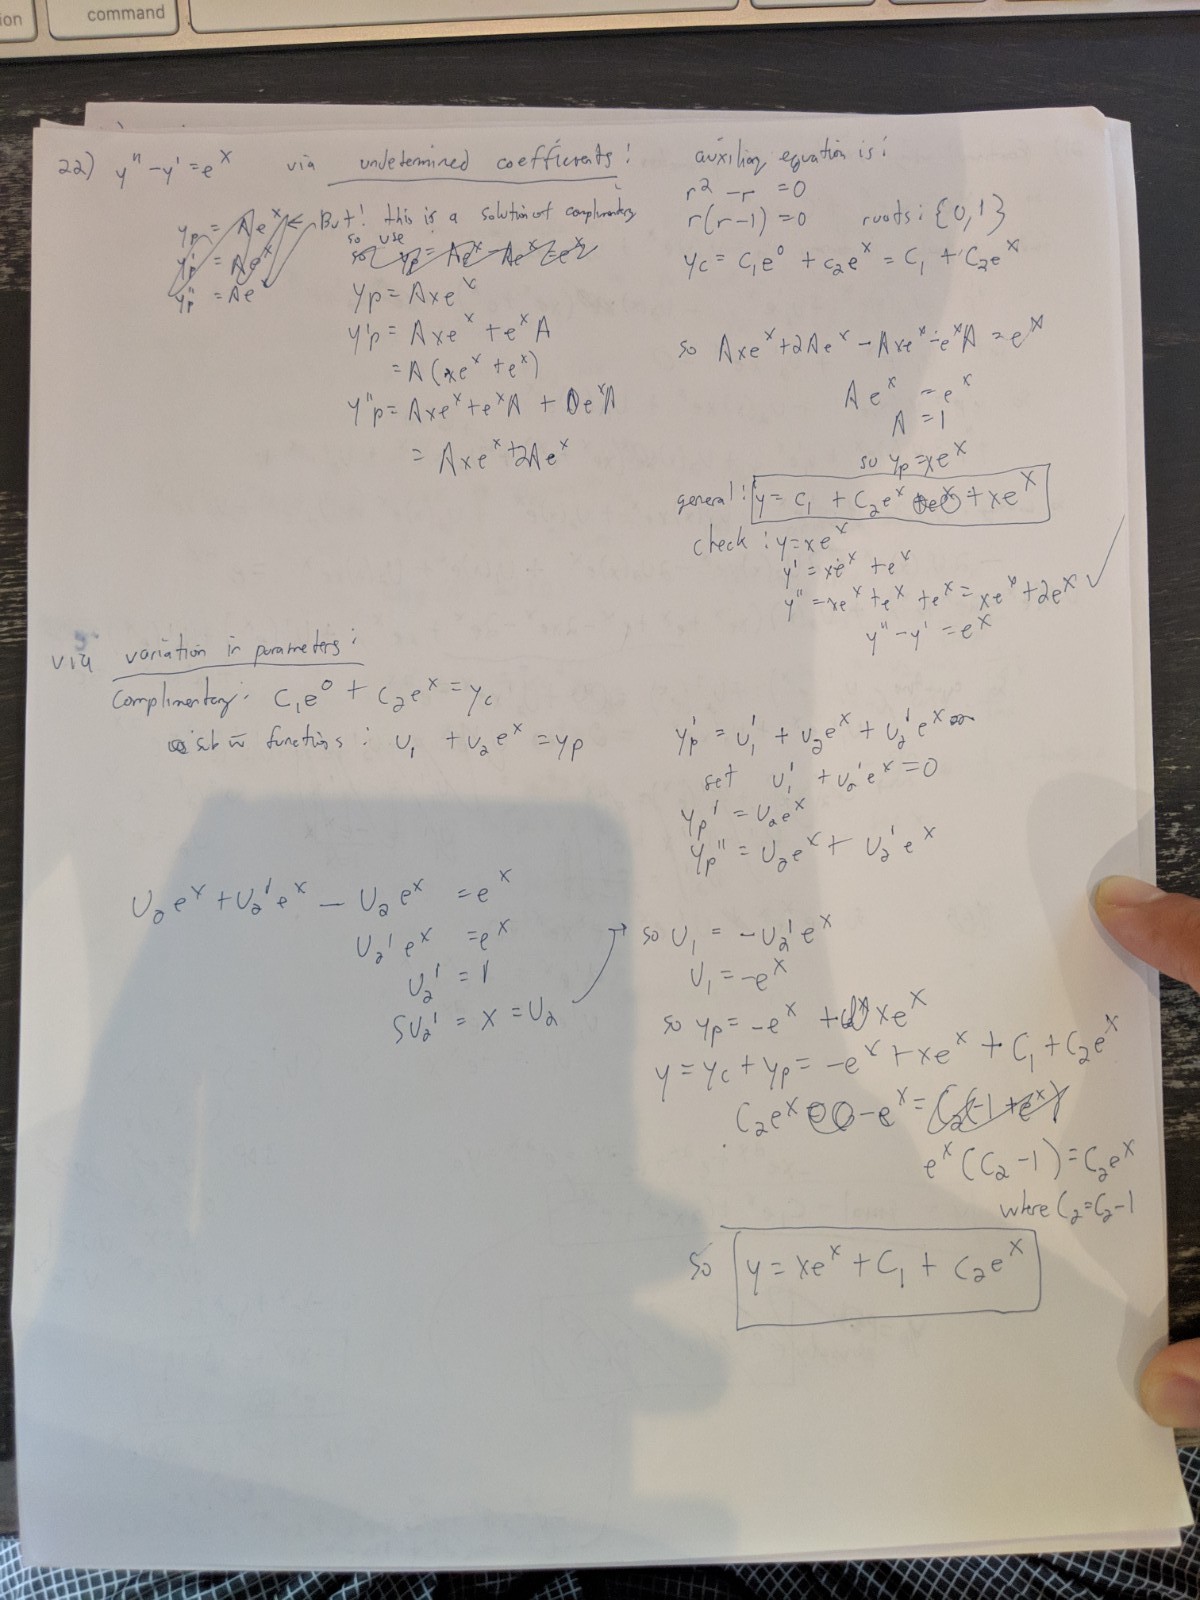 ion
command
22) y" - y' = e^x via undetermined coefficients:
yp = Ae^x ← But! this is a solution of complimentary
y'p = Ae^x so use
y"p = Ae
so yp = Ae^x - Ae^x = e^x
yp = Axe^x
y'p = Axe^x + e^x A
= A(xe^x + e^x)
y"p = Axe^x + e^x A + e^x A
= Axe^x + 2Ae^x
auxiliary equation is:
r^2 - r = 0
r(r-1) = 0 roots: {0,1}
yc = C₁e^0 + c₂e^x = C₁ + C₂e^x
so Axe^x + 2Ae^x - Axe^x - e^x A = e^x
Ae^x = e^x
A = 1
so yp = xe^x
general: y = C₁ + C₂e^x + xe^x
check: y = xe^x
y' = xe^x + e^x
y" = xe^x + e^x + e^x = xe^x + 2e^x ✓
y" - y' = e^x
via variation in parameters:
Complimentary: C₁e^0 + C₂e^x = yc
sub in functions: U₁ + U₂e^x = yp
yp' = U₁' + U₂e^x + U₂'e^x
set U₁' + U₂'e^x = 0
yp' = U₂e^x
yp" = U₂e^x + U₂'e^x
U₂e^x + U₂'e^x - U₂e^x = e^x
U₂'e^x = e^x
U₂' = 1
∫U₂' = x = U₂
→ so U₁ = -U₂'e^x
U₁ = -e^x
so yp = -e^x + xe^x
y = yc + yp = -e^x + xe^x + C₁ + C₂e^x
C₂e^x - e^x = C₂(-1 + e^x)
e^x(C₂ - 1) = C₂e^x
where C₂ = C₂ - 1
so y = xe^x + C₁ + C₂e^x